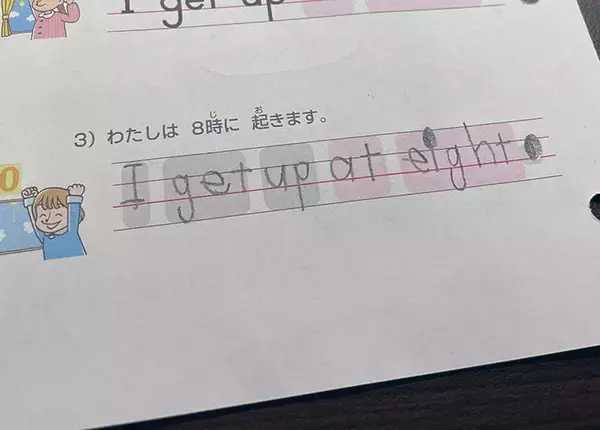 I get up
3) わたしは 8時に 起きます。
じ お
I get up at eight.